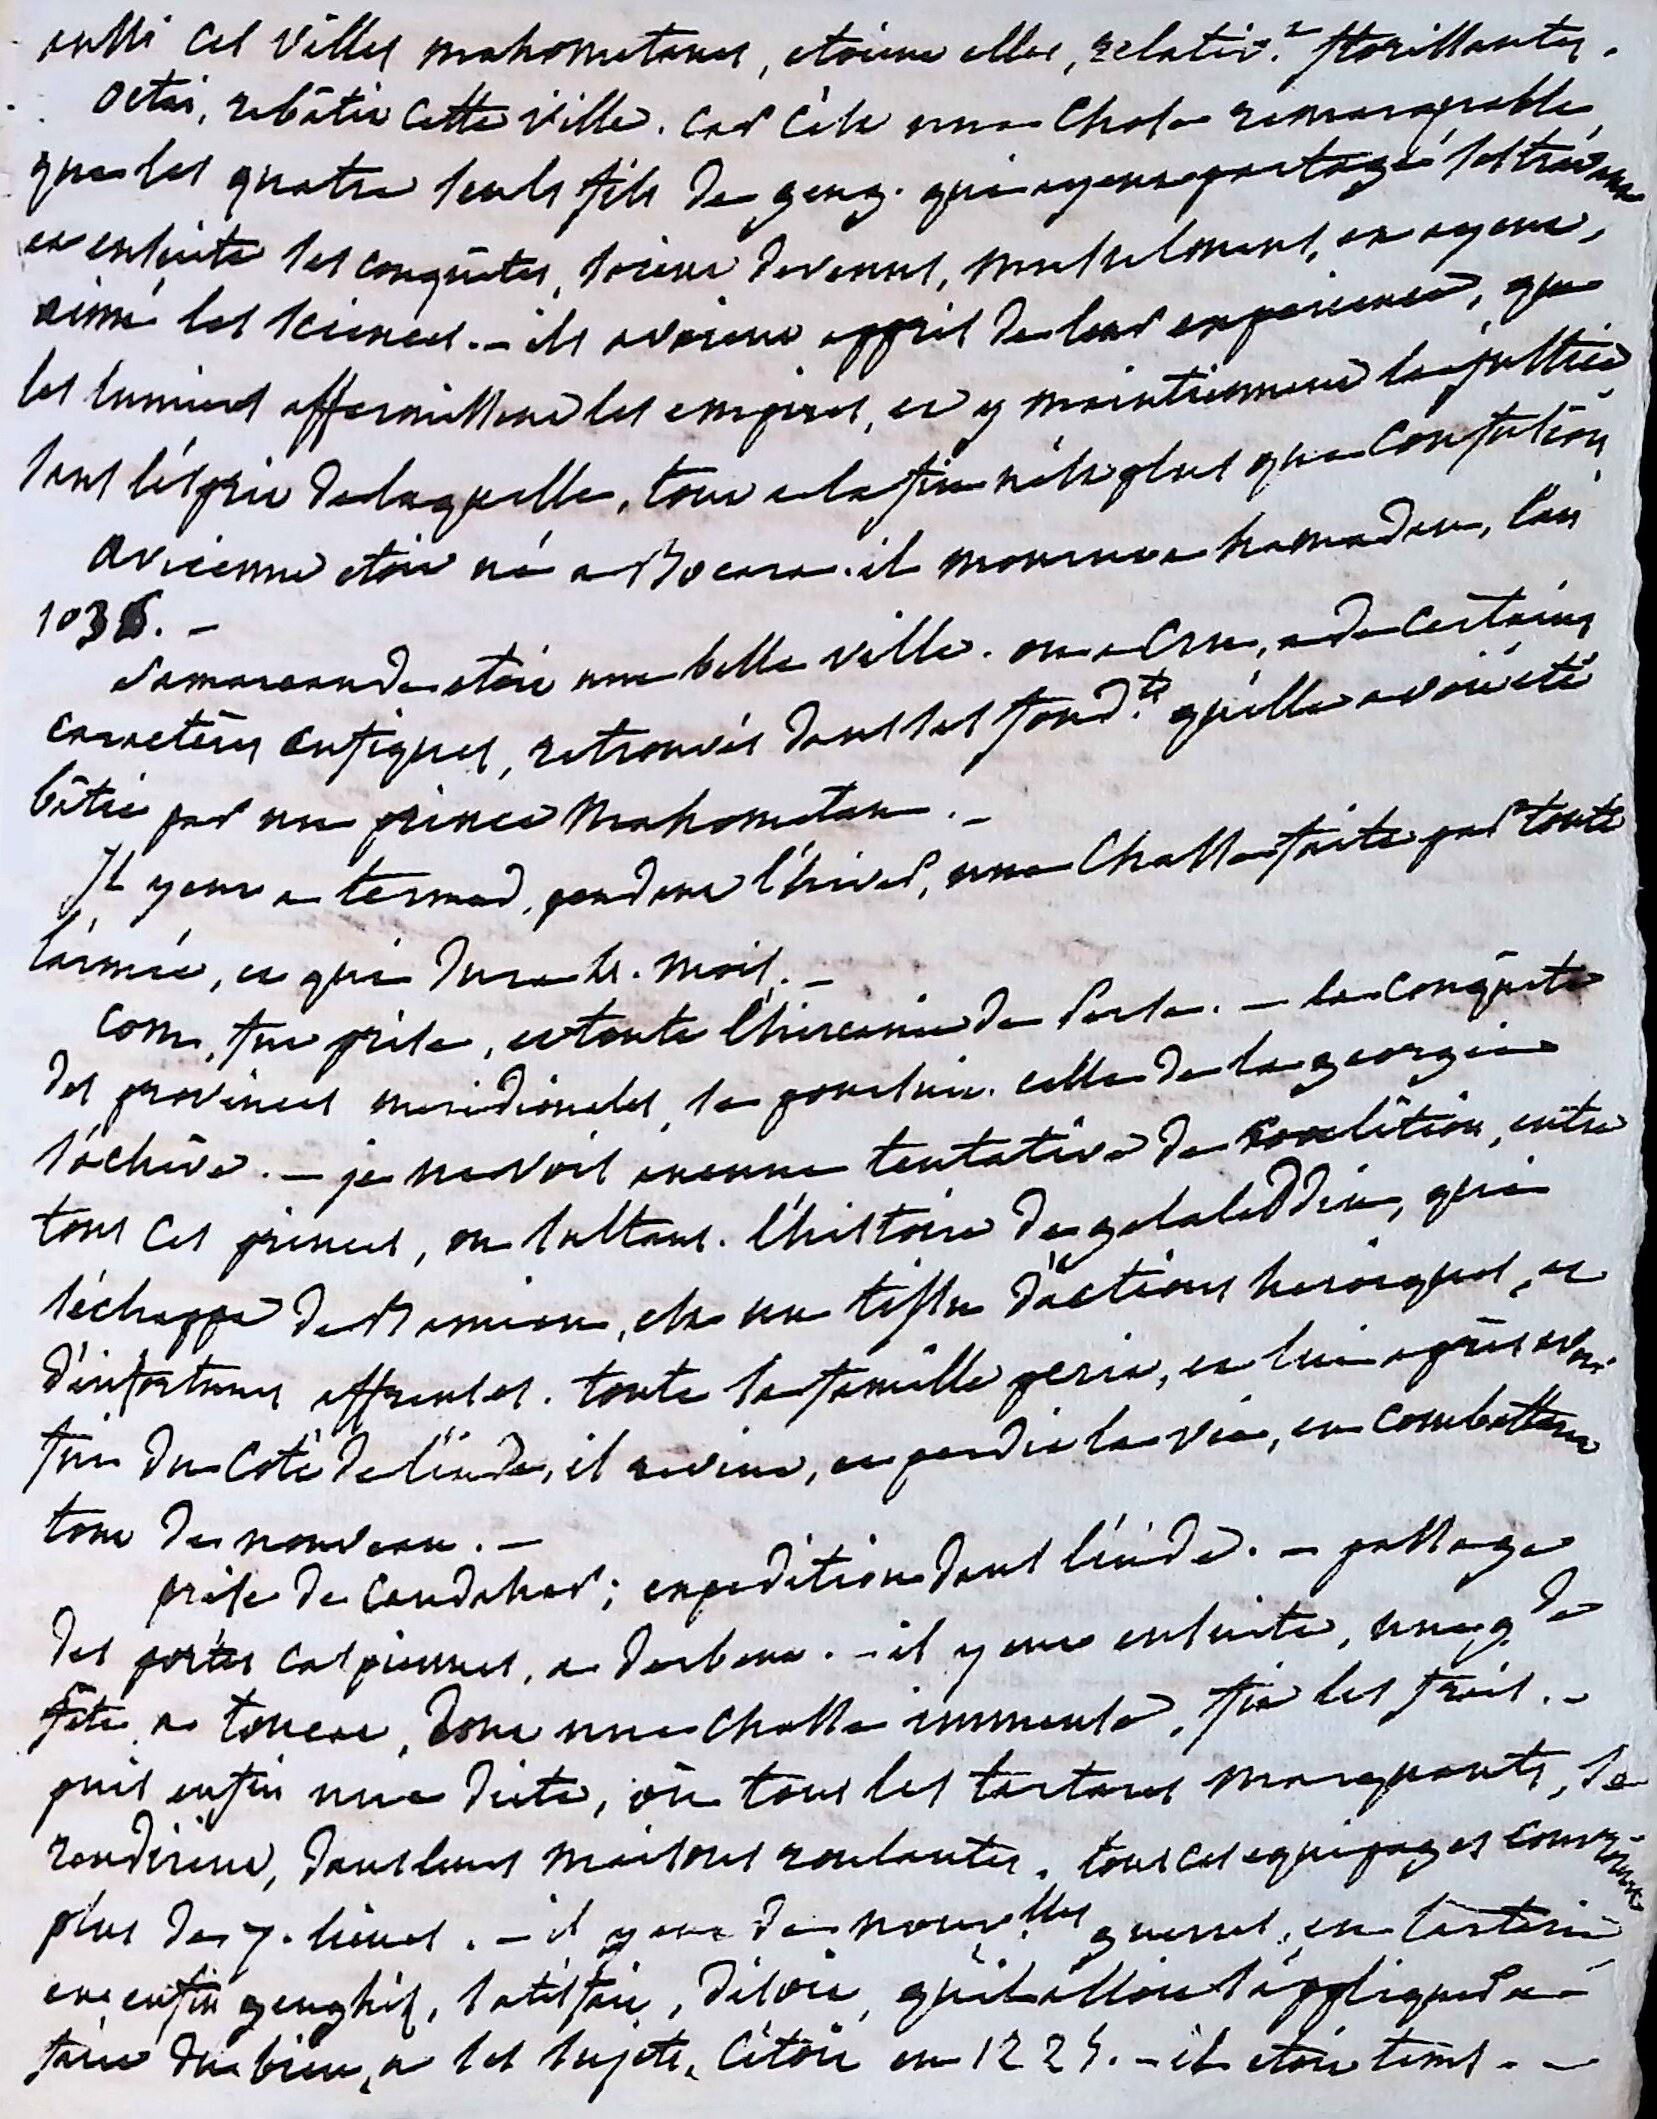 aussi ces villes mahometanes, etoient elles, relativ.t florissantes.
octai, rebâtit cette ville. car c'est une chose remarquable
que les quatre seuls fils de geng. qui ayent partagé ses travaux
et ensuite ses conquêtes, soient devenus, musulmans, et ayent,
aimé les sciences. - ils avoient appris de leur experience, que
les lumieres affermissent les empires, et y maintiennent la justice
sans l'ésprit de laquelle, tout a la fin n'ést plus que confusion.
avicenne etoit né a Bocara. il mourut a hamadan, l'an
1036. -
Samarcande etoit une belle ville. on a cru, a de certains
caractéres cufiques, retrouvés dans ses fond.ts qu'elle avoit eté
bâtie par un prince mahometan. -
Il y eut a termed, pendant l'hiver, une chasse faite par toute
l'armée, et qui dura 4. mois. -
Com, fut prise, et toute l'hircanie de Perse. - la conquête
des provinces meridionales, se poursuit. celle de la georgie
s'achève. - je ne vois aucune tentative de coalition, entre
tous ces princes, ou sultans. l'histoire de gelaleddin, qui
s'échappe de Bamian, est un tissu d'actions heroiques, et
d'infortunes affreuses. toute sa famille perit, et lui après avoir
fui du coté de l'inde, il revint, et perdit la vie, en combattant
tout de nouveau. -
prise de Candahar; expedition dans l'inde. - passage
des portes caspiennes, a Derbent. - il y eut ensuite, une g.de
fête a toncat, dont une chasse immense, fit les frais. -
puis enfin une diete, où tous les tartares marquants, se
rendirent, dans leurs maisons roulantes. tous ces equipages couvroient
plus de 7. lieues. - il y eut de nouv.lles guerres, en tartarie
et enfin genghis, satisfait, disoit, qu'il alloit s'appliquer a
faire du bien, a ses sujets. C'étoit en 1225. - il etoit tems. -